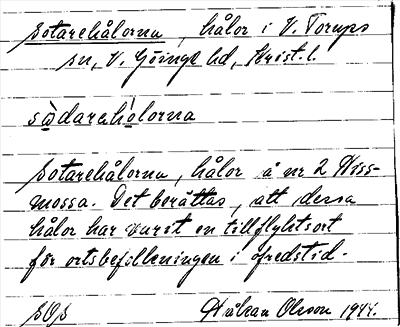 sotarehålorna, hålor i V. Torups
sn, V. Göinge hd, Krist. l.
sådarehòlorna
sotarehålorna, hålor å nr 2 Hiss-
mossa. Det berättas, att dessa
hålor har varit en tillflyktsort
för ortsbefolkningen i ofredstid.
Håkan Olsson 1944.